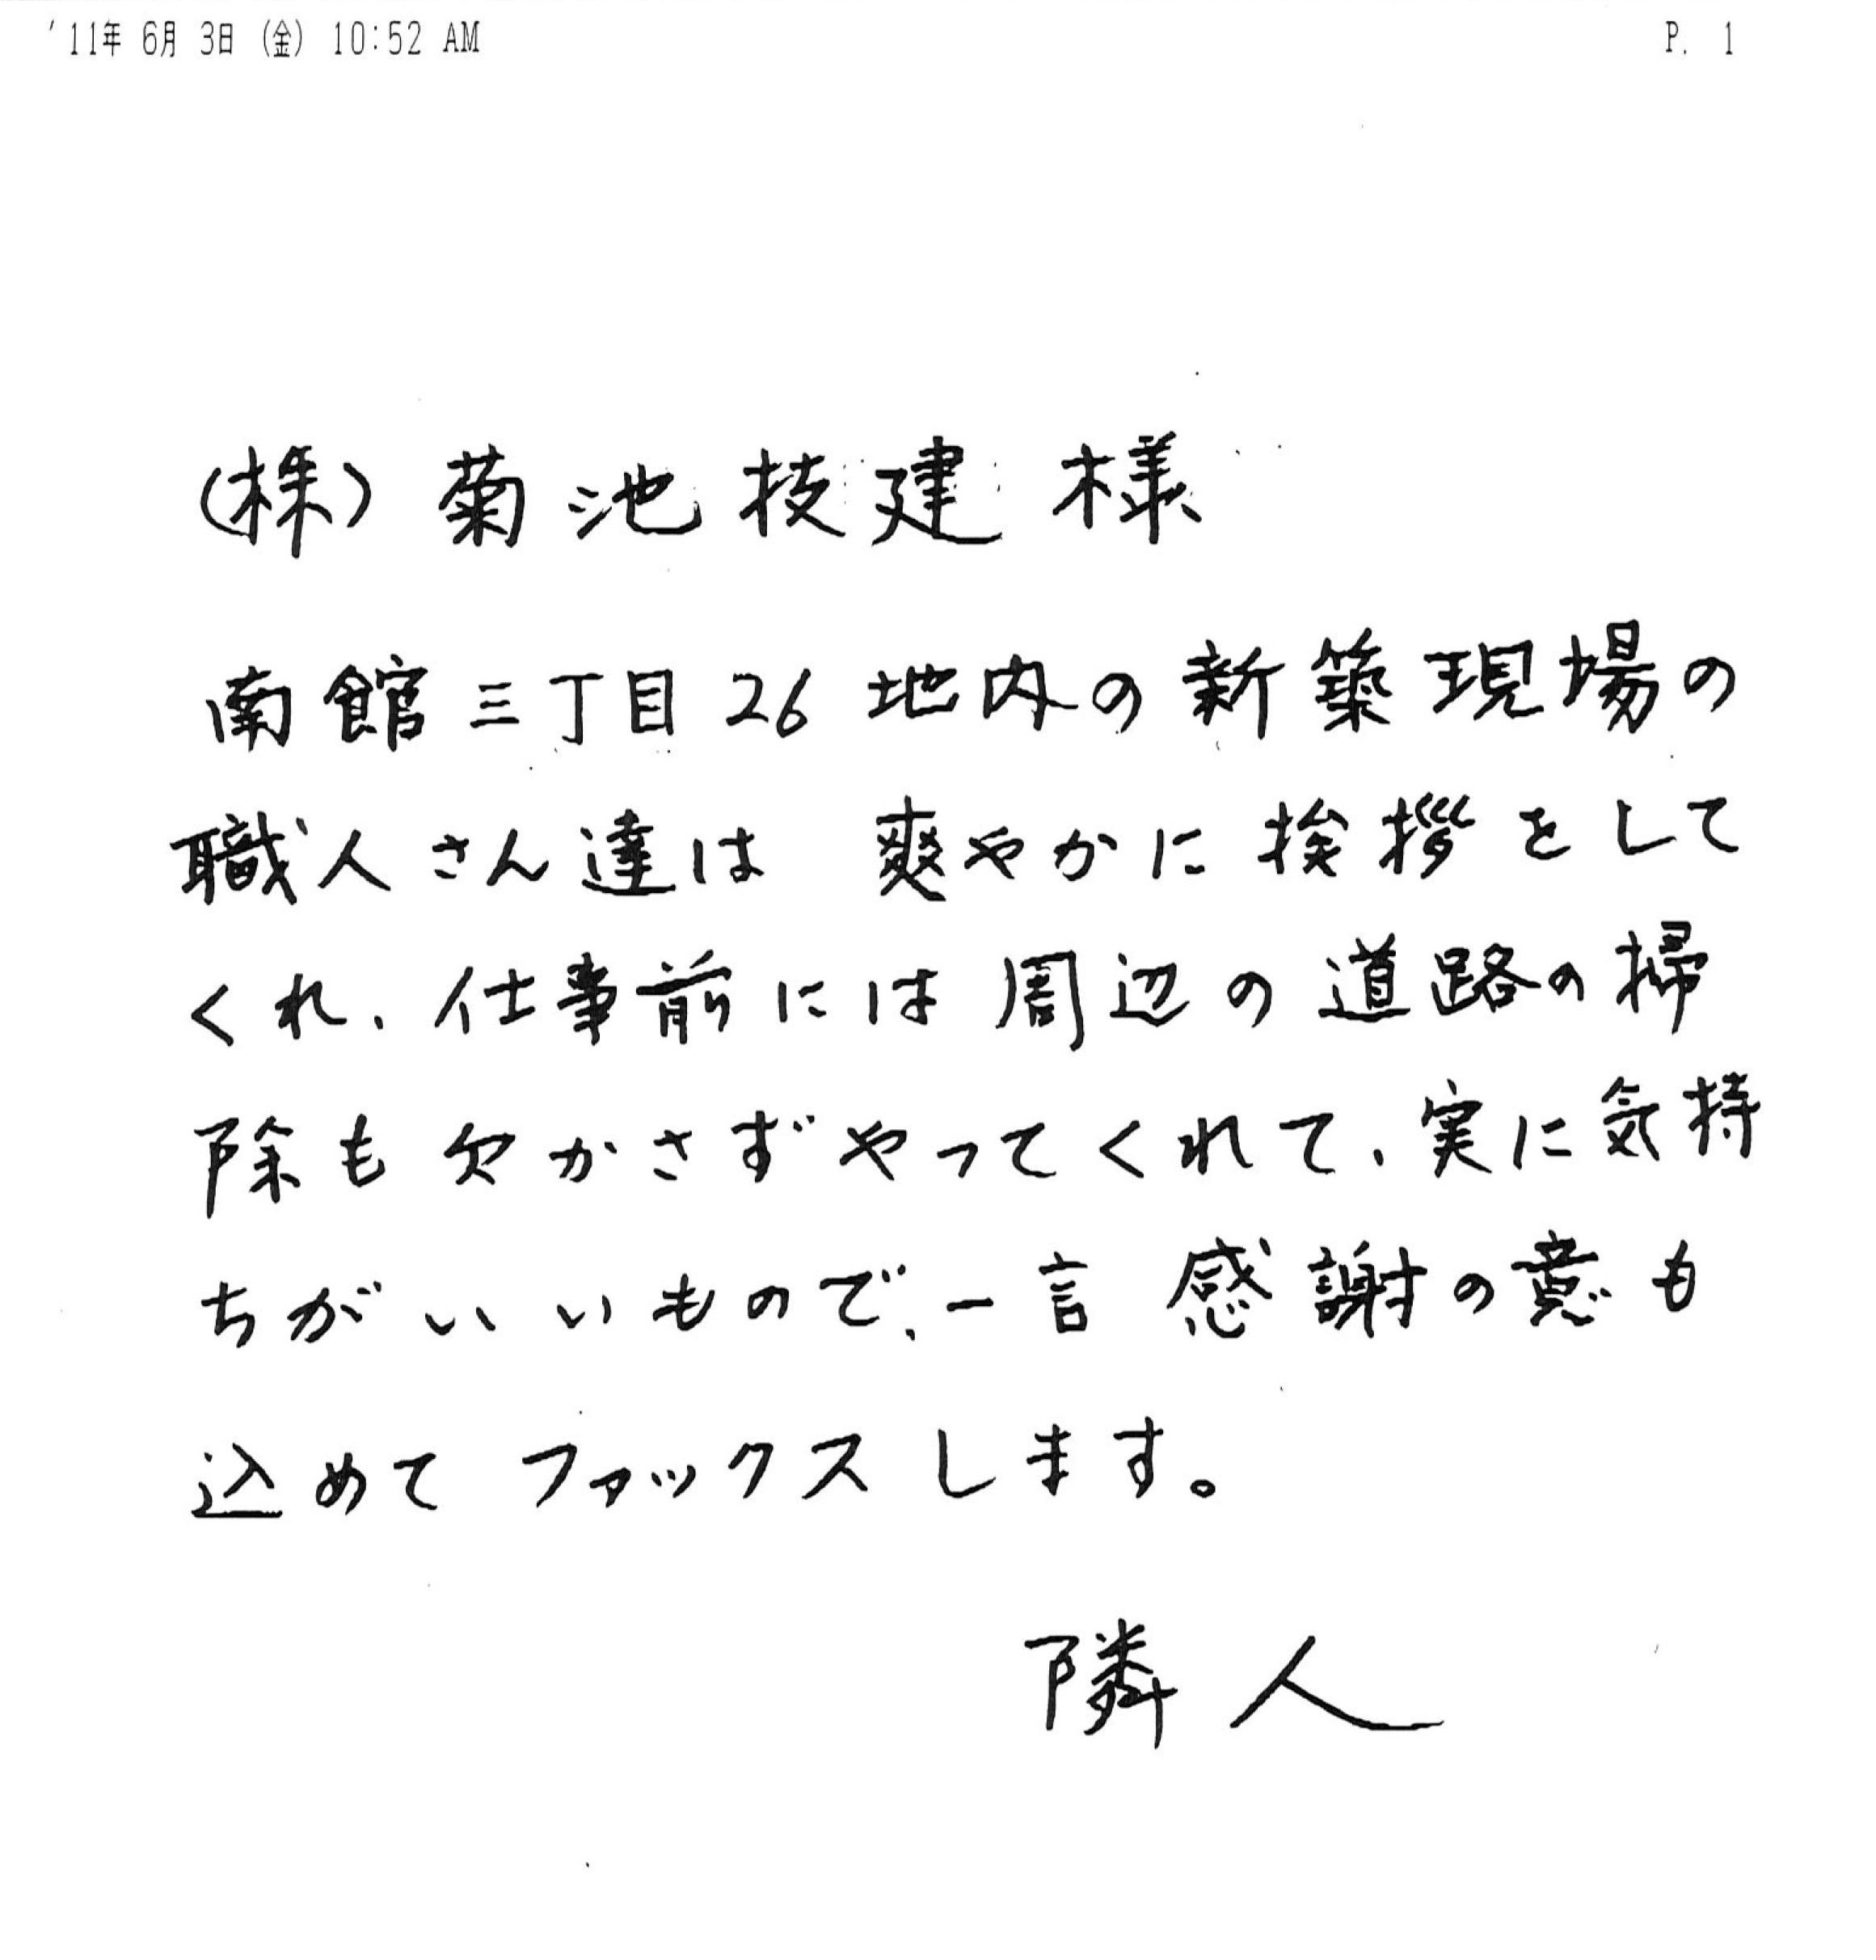 '11年 6月 3日 (金) 10:52 AM P. 1
(株)菊池技建 様
南館三丁目26地内の新築現場の
職人さん達は 爽やかに挨拶をして
くれ、仕事前には周辺の道路の掃
除も欠かさずやってくれて、実に気持
ちがいいもので、一言感謝の意も
込めてファックスします。
隣人